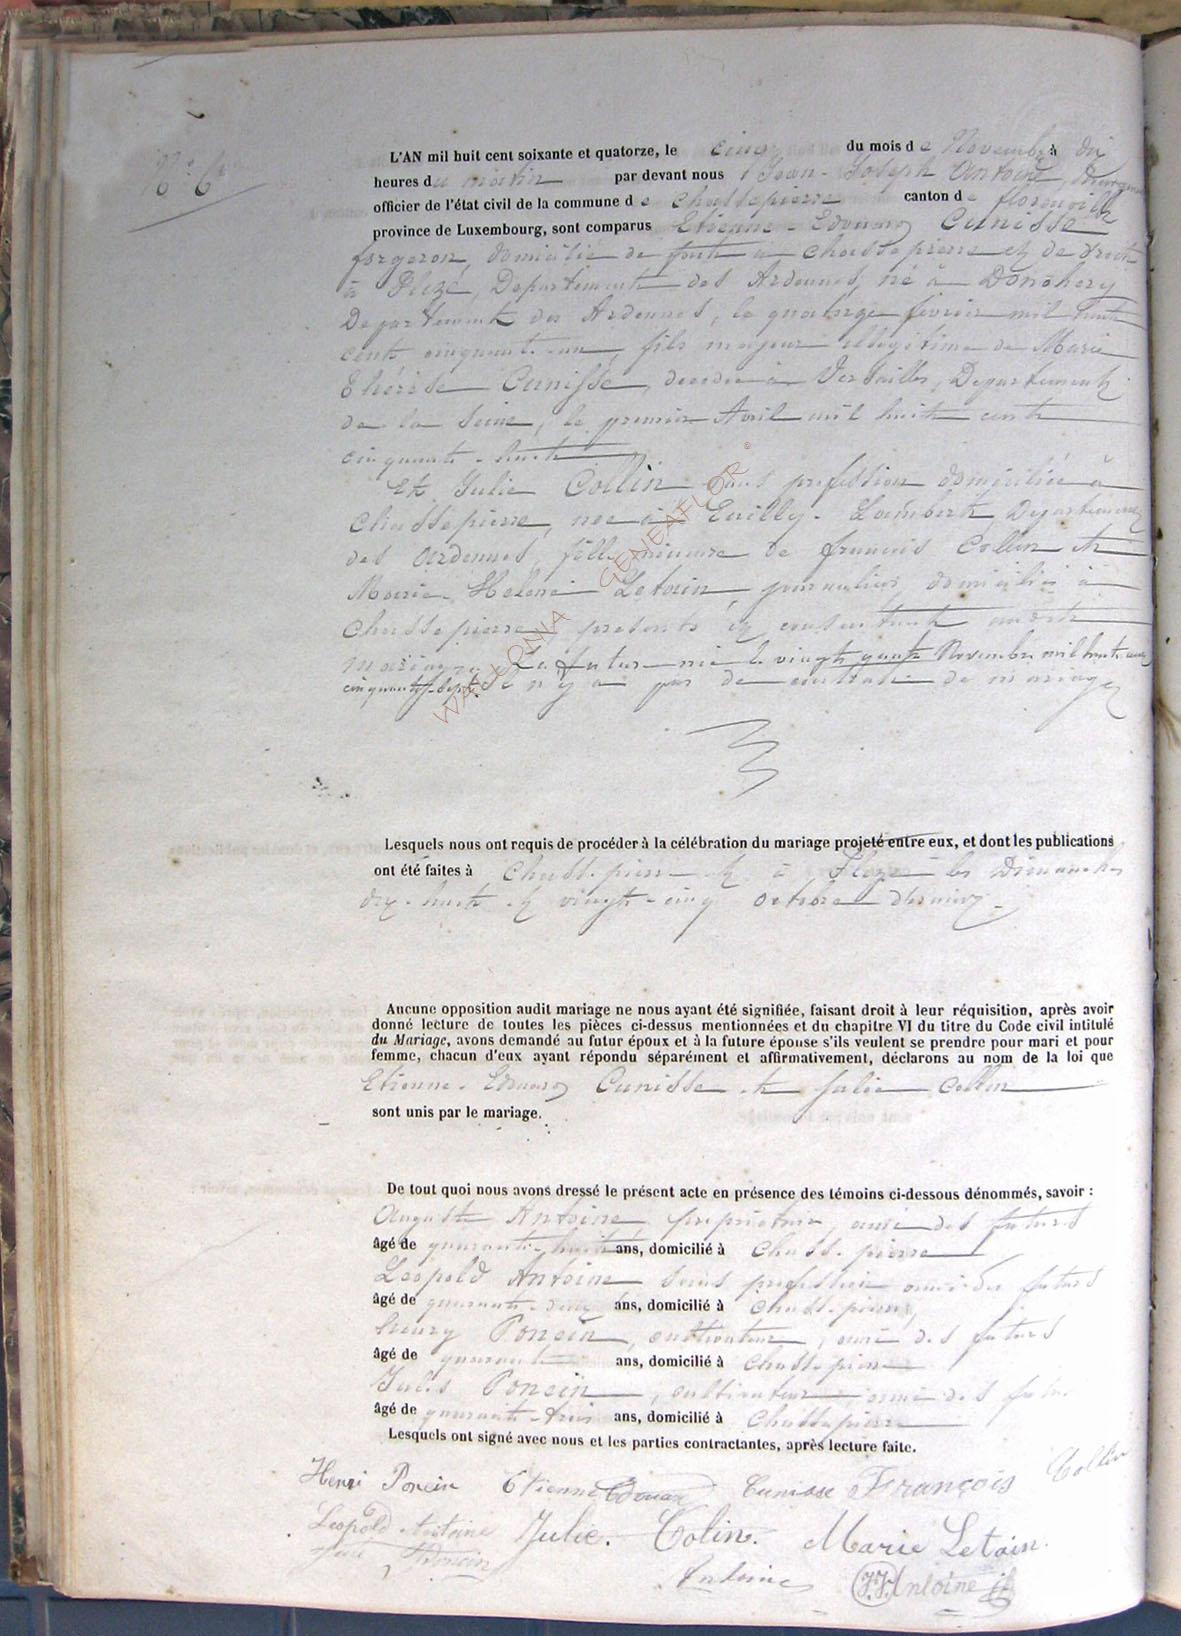 N° 6
L'AN mil huit cent soixante et quatorze, le cinq du mois de Novembre à dix
heures du matin par devant nous Jean-Joseph Antoine,
officier de l'état civil de la commune de Chassepierre canton de florenville
province de Luxembourg, sont comparus Etienne-Edouard Cunisse
forgeron, domicilié de fait à Chassepierre et de droit
à Flize, Departement des Ardennes, né à Donchery
Departement des Ardennes, le quatorze février mil huit
cent cinquante-un, fils majeur illegitime de Marie
Thérèse Cunisse, decedée à Versailles, Departement
de la Seine, le premier Avril mil huit cent
cinquante-huit
Et Julie Collin sans profession domiciliée à
Chassepierre, née à Euilly-Lombert, Departement
des Ardennes, fille mineure de françois Collin et
Marie-Helene Letoin, journaliers, domiciliés à
Chassepierre, presents et consentant audit
mariage. La future née le vingt quatre Novembre mil huit cent
cinquante-sept. Il n'y a pas de contrat de mariage
Lesquels nous ont requis de procéder à la célébration du mariage projeté entre eux, et dont les publications
ont été faites à Chassepierre et à Flize les Dimanches
dix-huit et vingt-cinq octobre dernier.
Aucune opposition audit mariage ne nous ayant été signifiée, faisant droit à leur réquisition, après avoir
donné lecture de toutes les pièces ci-dessus mentionnées et du chapitre VI du titre du Code civil intitulé
du Mariage, avons demandé au futur époux et à la future épouse s'ils veulent se prendre pour mari et pour
femme, chacun d'eux ayant répondu séparément et affirmativement, déclarons au nom de la loi que
Etienne-Edouard Cunisse et Julie Collin
sont unis par le mariage.
De tout quoi nous avons dressé le présent acte en présence des témoins ci-dessous dénommés, savoir :
Auguste Antoine proprietaire, ami des futurs
âgé de quarante-huit ans, domicilié à Chassepierre
Léopold Antoine sans profession ami des futurs
âgé de quarante-deux ans, domicilié à Chassepierre,
henry Poncin, cultivateur, ami des futurs
âgé de quarante ans, domicilié à Chassepierre
Jules Poncin, cultivateur ami des futurs
âgé de quarante-trois ans, domicilié à Chassepierre
Lesquels ont signé avec nous et les parties contractantes, après lecture faite.
Henri Poncin Etienne Edouard Cunisse François Collin
Leopold Antoine Julie. Colin. Marie Letoin.
Poncin Antoine J.J. Antoine
WALLONIA GENEAFLOR ©